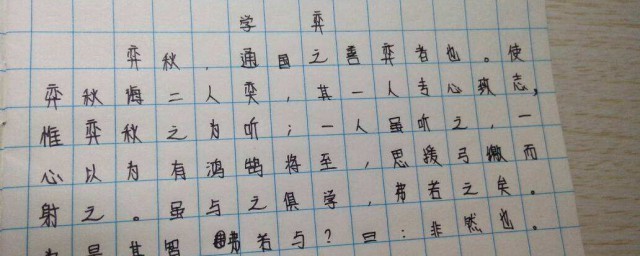 学 弈
弈秋，通国之善弈者也。使
弈秋诲二人奕，其一人专心致志，
惟弈秋之为听；一人虽听之，一
心以为有鸿鹄将至，思援弓缴而
射之。虽与之俱学，弗若之矣。
为是其智弗若与？曰：非然也。